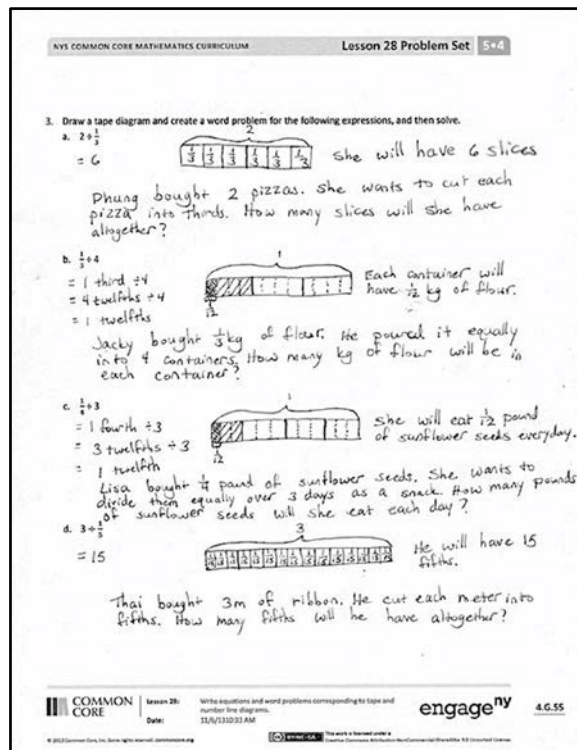 NYS COMMON CORE MATHEMATICS CURRICULUM Lesson 28 Problem Set 5•4
3. Draw a tape diagram and create a word problem for the following expressions, and then solve.
a. 2 ÷ 1/3
= 6
2
1/3 1/3 1/3 1/3 1/3 1/3
She will have 6 slices
Phung bought 2 pizzas. She wants to cut each
pizza into thirds. How many slices will she have
altogether?
b. 1/3 ÷ 4
= 1 third ÷ 4
= 4 twelfths ÷ 4
= 1 twelfths
1
1/12
Each container will
have 1/12 kg of flour.
Jacky bought 1/3 kg of flour. He poured it equally
into 4 containers. How many kg of flour will be in
each container?
c. 1/4 ÷ 3
= 1 fourth ÷ 3
= 3 twelfths ÷ 3
= 1 twelfth
1
1/12
She will eat 1/12 pound
of sunflower seeds everyday.
Lisa bought 1/4 pound of sunflower seeds. She wants to
divide them equally over 3 days as a snack. How many pounds
of sunflower seeds will she eat each day?
d. 3 ÷ 1/5
= 15
3
He will have 15
fifths.
Thai bought 3m of ribbon. He cut each meter into
fifths. How many fifths will he have altogether?
COMMON CORE
Lesson 28: Write equations and word problems corresponding to tape and
number line diagrams.
Date: 11/6/1310:33 AM
engageny
4.G.55
© 2013 Common Core, Inc. Some rights reserved. commoncore.org
This work is licensed under a
Creative Commons Attribution-NonCommercial-ShareAlike 3.0 Unported License.